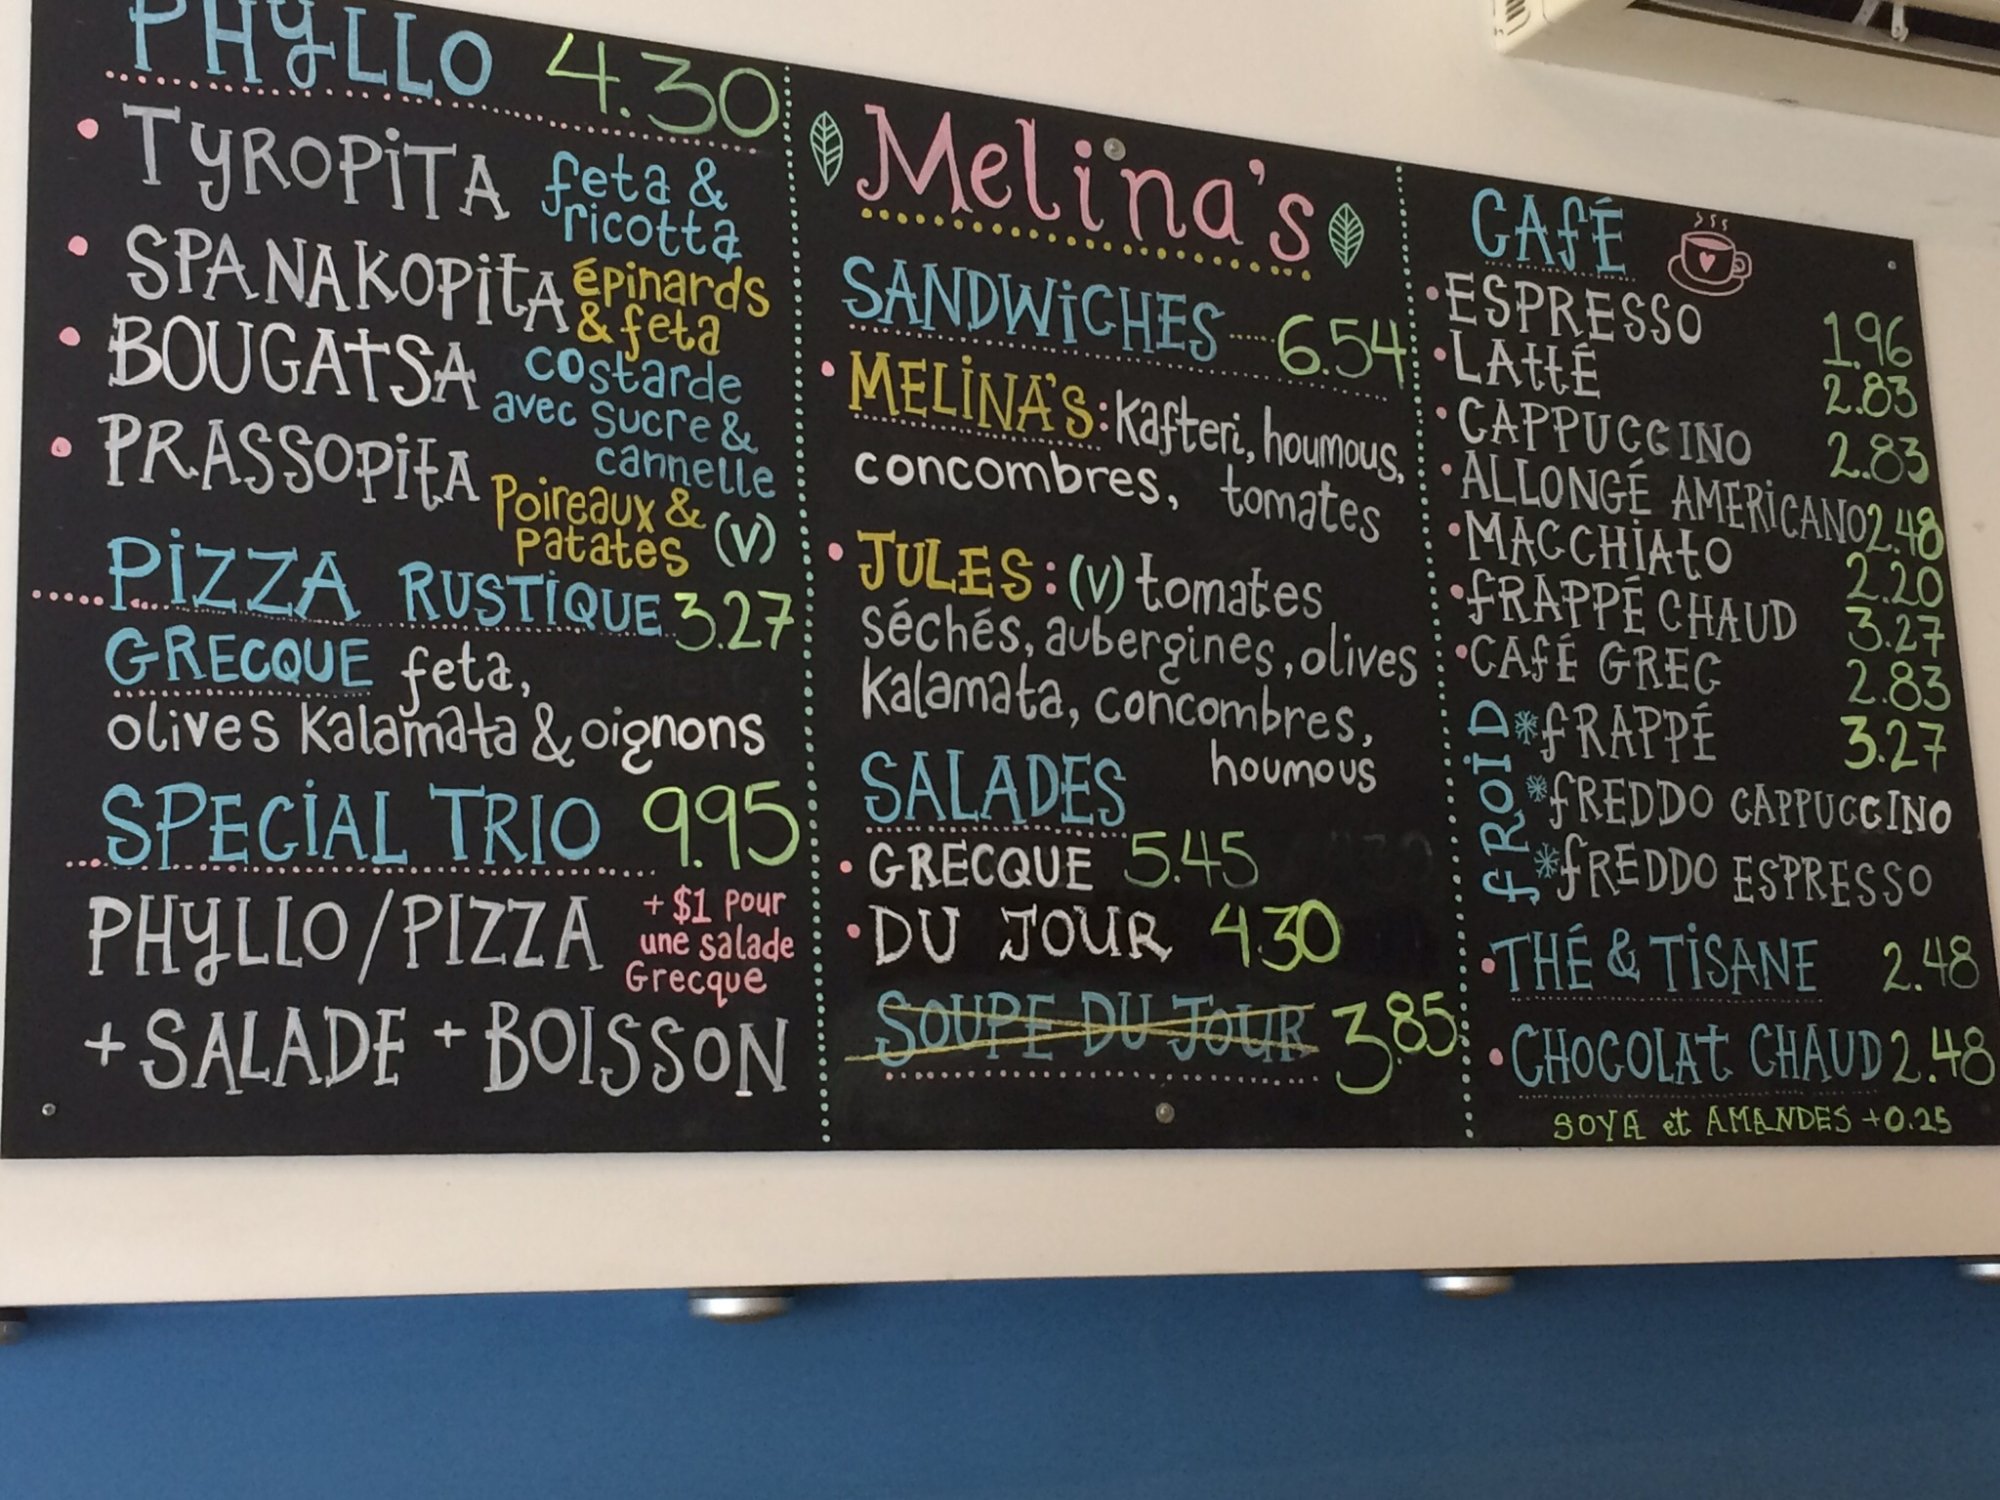 PHYLLO 4.30
• TYROPITA feta &
ricotta
• SPANAKOPITA épinards
& feta
• BOUGATSA costarde
avec sucre &
cannelle
• PRASSOPITA Poireaux &
patates (V)
PIZZA RUSTIQUE 3.27
GRECQUE feta,
olives Kalamata & oignons
SPECIAL TRIO 9.95
PHYLLO/PIZZA + $1 pour
une salade
Grecque
+ SALADE + BOISSON
Melina's
SANDWICHES 6.54
• MELINA'S: Kafteri, houmous,
concombres, tomates
• JULES: (V) tomates
séchés, aubergines, olives
Kalamata, concombres,
houmous
SALADES
• GRECQUE 5.45
• DU JOUR 4.30
SOUPE DU JOUR 3.85
CAFÉ
• ESPRESSO 1.96
• LATTÉ 2.83
• CAPPUCCINO 2.83
• ALLONGÉ AMERICANO 2.48
• MACCHIATO 2.20
• FRAPPÉ CHAUD 3.27
• CAFÉ GREC 2.83
FROID
* FRAPPÉ 3.27
* FREDDO CAPPUCCINO
* FREDDO ESPRESSO
• THÉ & TISANE 2.48
• CHOCOLAT CHAUD 2.48
SOYA et AMANDES +0.25